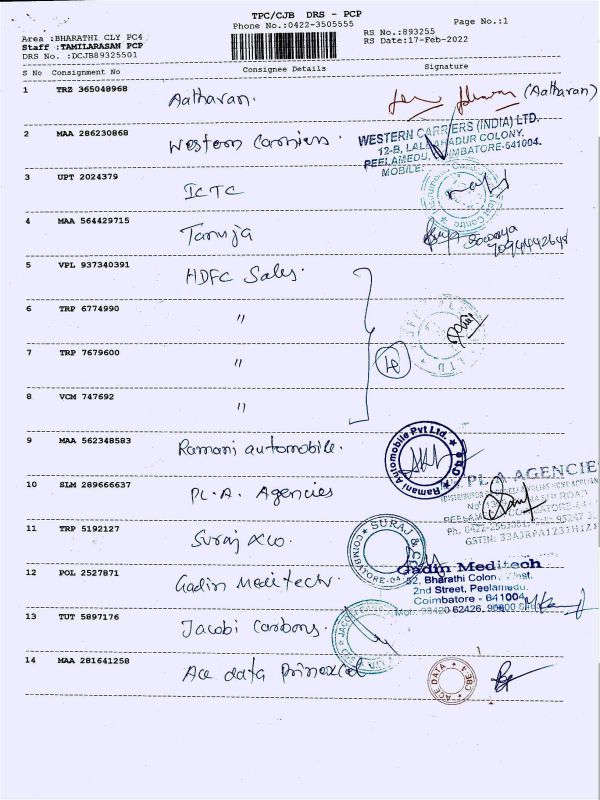 TPC/CJB DRS - PCP
Phone No.:0422-3505555
Page No.:1
Area :BHARATHI CLY PC4
Staff :TAMILARASAN PCP
DRS No. :DCJB89325501
RS No.:893255
RS Date:17-Feb-2022
S No Consignment No Consignee Details Signature
1 TRZ 365048968 Aatharan. (Aatharan)
2 MAA 286230868 Western Carriers.
WESTERN CARRIERS (INDIA) LTD.
12-B, LAL BAHADUR COLONY,
PEELAMEDU, COIMBATORE-641004.
MOBILE:
3 UPT 2024379 ICTC
4 MAA 564429715 Tanuja
5 VPL 937340391 HDFC Sales.
6 TRP 6774990 "
7 TRP 7679600 "
8 VCM 747692 "
9 MAA 562348583 Ramani automobile.
Ramani Automobile Pvt Ltd.
10 SLM 289666637 PL.A. Agencies
PL A AGENCIE
11 TRP 5192127 Suraj &co
SURAJ & CO
COIMBATORE-04
12 POL 2527871 Gadin Meditech
Gadin Meditech
52, Bharathi Colony, West.
2nd Street, Peelamedu.
Coimbatore - 641004
13 TUT 5897176 Jacobi Carbons.
14 MAA 281641258 Ace data
ACE DATA
CBE 4